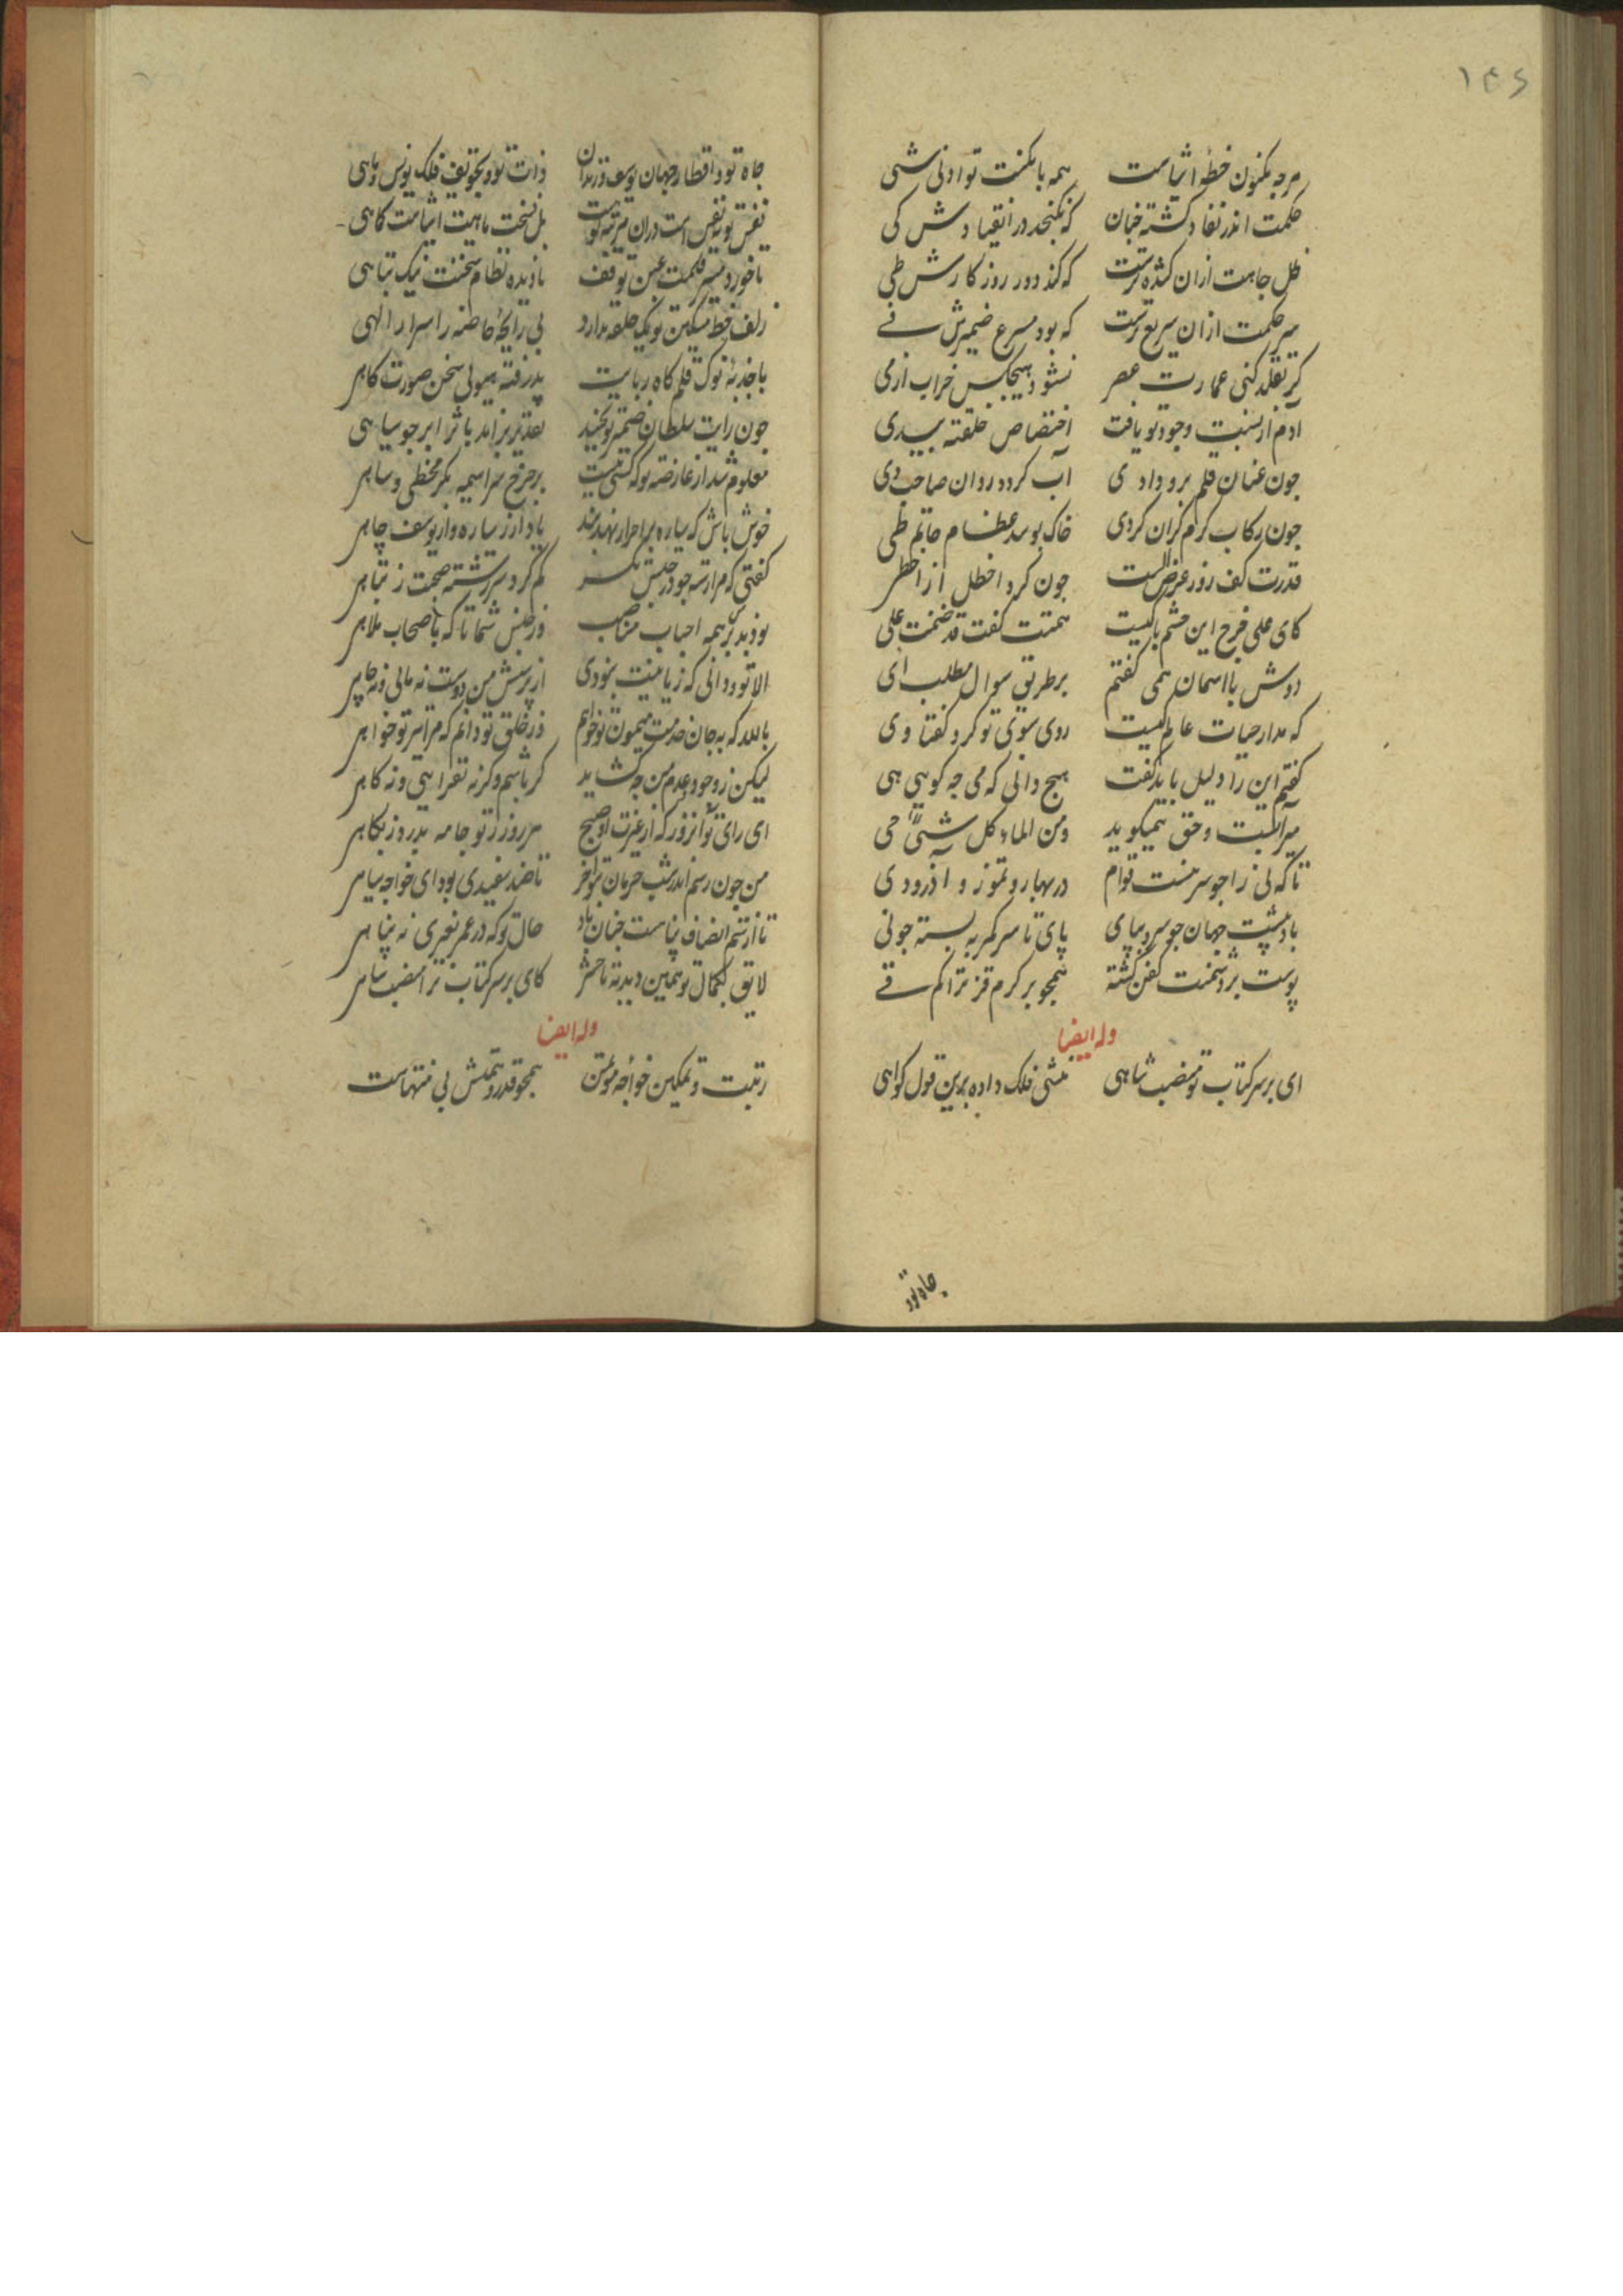 ۱۴۶
هرچه مکنون خطهٔ اشیاست همه با مکنت تو ادنی شئی
حکمت اندر نفاد کشته چنان که نکنجد در انقیادش کی
ظل جاهت ازان کشده‌ترست که کند دور روزکارش طی
سر حکمت ازان سریع‌ترست که بود مسرع ضمیرش فی
کر تقلد کنی عمارت عصر نشود هیچکس خراب از می
آدم از نسبت وجود تو یافت اختصاص خلقته بیدی
چون عنان قلم برو دادی آب کردد روان صاحب ری
چون رکاب کرم کران کردی خاک بوسد عظام حاتم طی
قدرت کف روز عرض الست جون کرد اخطل از اخطی
کای علی فرخ این حشم باکیست همتت کفت قد ضمنت علی
دوش با اسمان همی کفتم بر طریق سوال مطلب ای
که مدار حیات عالم کیست روی سوی تو کرد و کفتا وی
کفتم این را دلیل باید کفت هیچ دانی که می چه کویی هی
میر آبست و حق همیکوید ومن الماء کل شئی حی
تا که نی را جو سر نیست قوام در بهار و تموز و آذر و دی
باد پشت جهان جو سر و بپای پای تا سر کمر به بسته جو نی
پوست بر دشمنت کفن کشته همچو بر کرم قز تراکم قی
وله ایضا
ای بر سر کتاب تو منصب شاهی منشی فلک داده برین قول کواهی
جاه تو در
جاه تو و اقطار جهان یوسف و زندان ذات تو و تجویف فلک یونس و ماهی
نفس تو نفس است دران مرتبه کوست بل نسخت ماهیت اشیاست کماهی
ناخورده مسیر قلمت عبن توقف نادیده نظام سخنت نیک تباهی
زلف خط مشکین تو یک حلقه ندارد بی رایحهٔ خاصه ز اسرار الهی
با جذبهٔ نوک قلم کاه ربایت پذرفته هیولی سخن صورت کاهی
جون رایت سلطان ضمیر تو بجنبد تقدیر براند باثر ابر جو سپاهی
معلوم شد از عارضهٔ تو که کسی نیست بر چرخ سراسیمه مکر مخطی و ساهی
خوش باش که سیاره بر احرار نهد بند یاد آر ز سیاره و از یوسف چاهی
کفتی که مرا رتبه جو در جنس کم کرد سر رشته صحبت ز تباهی
بودند برم همه احباب مناصب در جنس شما تا که باصحاب ملاهی
الا تو و دانی که زیانیت نبودی از پرسش من دوست نه مالی و نه جاهی
بالله که بجان خدمت میمون تو خواهم در خلق تو دانم که مرا نیز تو خواهی
لیکن ز وجود و عدم من چه کشاید کر باشم و کرنه نفزایی و نه کاهی
ای رای تو آن روز که از غیرت او صبح هر روز ز نو جامه بدرد ز پکاهی
من جون رسم اندر شب حرمان تو آخر تا ضد سفیدی بود ای خواجه سیاهی
تا از ستم انصاف پناهست جنان باد حال تو که در عمر بغیری نه پناهی
لایق بکمال تو همین دید که تا حشر کای بر سر کتاب ترا منصب شاهی
وله ایضا
رتبت و تمکین خواجه مؤتمن همچو قدر و همتش بی منتهاست